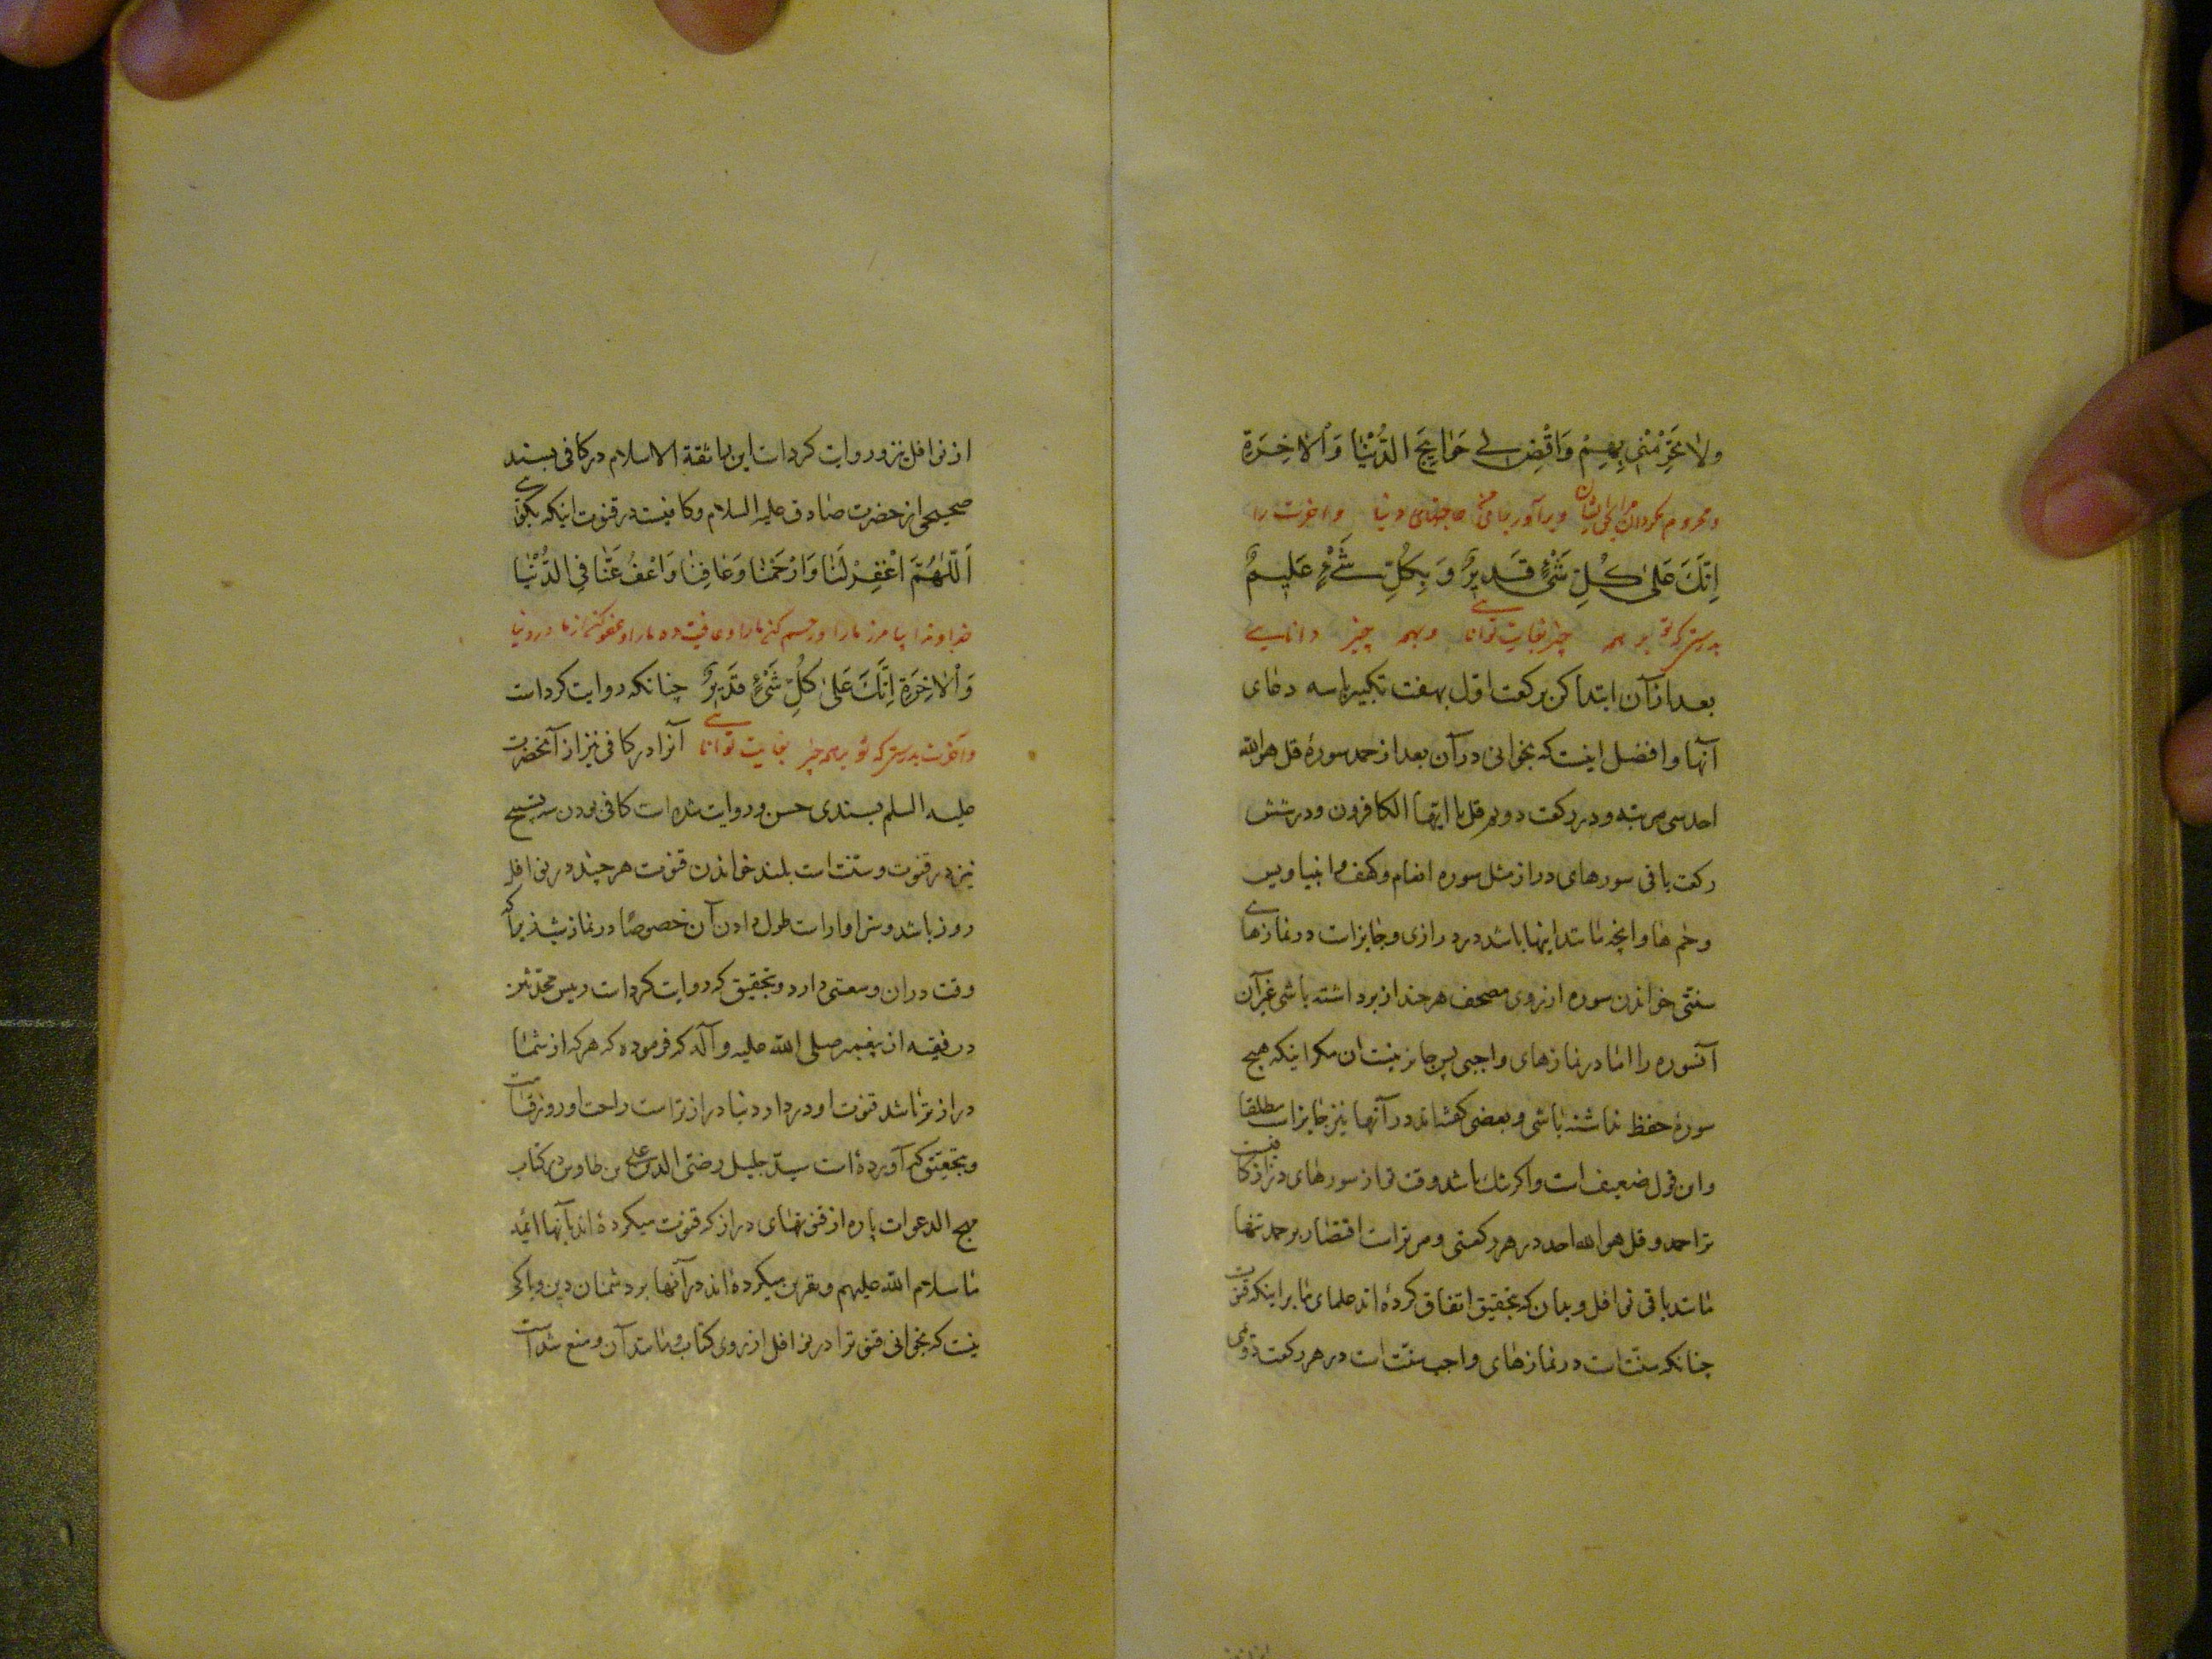 ولا تحرمنی بهم وَاقْضِ لی حَوایِجَ الدُّنْیٰا وَاْلاٰخِرَةِ
و محروم مگردان مرا بایشان و برآور برای من حاجتهای دنیا و آخرت را
اِنَّكَ عَلیٰ كُلِّ شَیْءٍ قَدیرٌ وَ بِكُلِّ شَیْءٍ عَلیمٌ
بدرستی که تو بر همه چیز بغایت توانایی و بهمه چیز دانایی
بعد از آن ابتدا کن برکعت اول بهفت تکبیر با سه دعای
آنها و افضل اینست که بخوانی در آن بعد از حمد سورهٔ قل هو الله
احد سی مرتبه و در رکعت دویم قل یا ایها الکافرون و در شش
رکعت باقی سورهای دراز مثل سوره انعام و کهف و انبیا و یس
و حم ها و آنچه مانند اینها باشد در درازی و جایز است در نمازهای
سنتی خواندن سوره از روی مصحف هر چند از بر داشته باشی غیر آن
آنسوره را اما در نمازهای واجبی پس جایز نیست آن مگر اینکه هیچ
سورهٔ حفظ نداشته باشی و بعضی گفته‌اند در آنها نیز جایز است مطلقا
و این قول ضعیف است و اگر تنك باشد وقت تو از سورهای دراز کافیست
ترا حمد و قل هو الله احد در هر رکعتی و مر تراست اقتصار بر حمد تنها
مانند باقی نوافل و بدان که بتحقیق اتفاق کرده‌اند علمای ما بر اینکه قنوت
چنانکه سنّت است در نمازهای واجب سنّت است در هر رکعت دومی
از نوافل نیز و روایت کرده است این را ثقة الاسلام در کافی بسند
صحیحی از حضرت صادق علیه السلام و کافیست در قنوت اینکه بگویی
اَللّٰهُمَّ اغْفِرْ لَنٰا وَارْحَمْنٰا وَعٰافِنٰا وَاعْفُ عَنّٰا فِی الدُّنْیٰا
خداوندا بیامرز ما را و رحم کن ما را و عافیت ده ما را و عفو کن از ما در دنیا
وَاْلاٰخِرَةِ اِنَّكَ عَلیٰ كُلِّ شَیْءٍ قَدیرٌ چنانکه روایت کرده است
و آخرت بدرستی که تو بر همه چیز بغایت توانایی آنرا در کافی نیز از آنحضرت
علیه السلم بسندی حسن و روایت شده است کافی بودن سه تسبیح
نیز در قنوت و سنّت است بلند خواندن قنوت هر چند در نوافل
روز باشد و سزاوار است طول دادن آن خصوصًا در نماز شب زیرا که
وقت در آن وسعتی دارد و بتحقیق که روایت کرده است رییس محدثین
در فقیه از پیغمبر صلی الله علیه و آله که فرموده که هر که از شما
دراز تر باشد قنوت او در دار دنیا دراز تر است راحت او روز قیامت
و بتحقیق که آورده است سید جلیل رضی الدین علی بن طاوس در کتاب
مهج الدعوات پاره از قنوتهای دراز که قنوت میکرده‌اند بآنها ائمه
ما سلام الله علیهم و نفرین میکرده‌اند در آنها بر دشمنان دین و باکی
نیست که بخوانی قنوت را در نوافل از روی کتاب و مانند آن و منع شده است